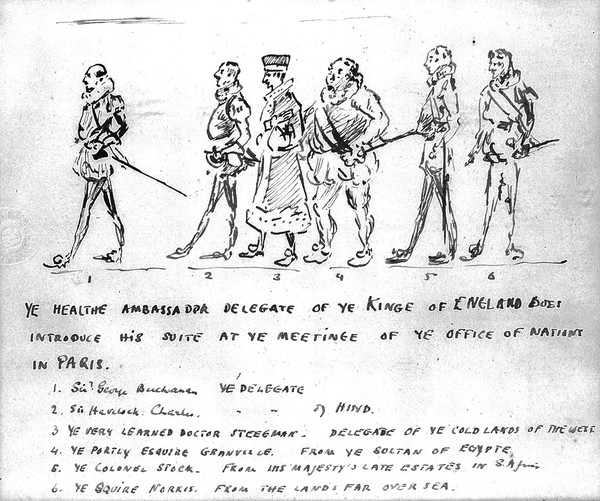 1 2 3 4 5 6
YE HEALTHE AMBASSADOR DELEGATE OF YE KINGE OF ENGLAND DOES
INTRODUCE HIS SUITE AT YE MEETINGE OF YE OFFICE OF NATIONS
IN PARIS.
1. Sir George Buchanan YE DELEGATE
2. Sir Havelock Charles. - - of HIND.
3 YE VERY LEARNED DOCTOR STEEGMAN. DELEGATE OF YE COLD LANDS OF THE WEST
4. YE PORTLY ESQUIRE GRANVILLE. FROM YE SULTAN OF EGYPTE
5. YE COLONEL STOCK. FROM HIS MAJESTY'S LATE ESTATES IN S. Africa
6. YE SQUIRE NORRIS. FROM THE LANDS FAR OVER SEA.